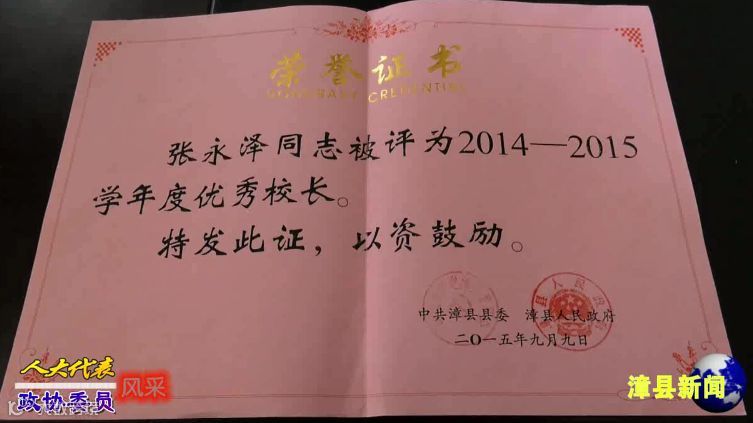 荣誉证书
HONORARY CREDENTIAL
张永泽同志被评为2014—2015
学年度优秀校长。
特发此证，以资鼓励。
中共漳县县委 漳县人民政府
二〇一五年九月九日
人大代表
政协委员
风采
漳县新闻